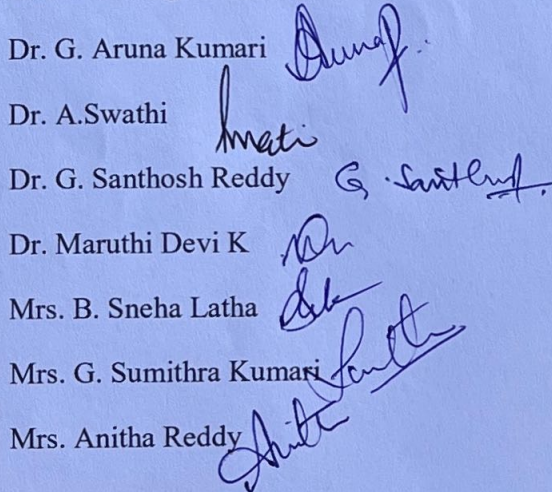 Dr. G. Aruna Kumari
Dr. A.Swathi
Dr. G. Santhosh Reddy G. Santhosh
Dr. Maruthi Devi K
Mrs. B. Sneha Latha
Mrs. G. Sumithra Kumari
Mrs. Anitha Reddy